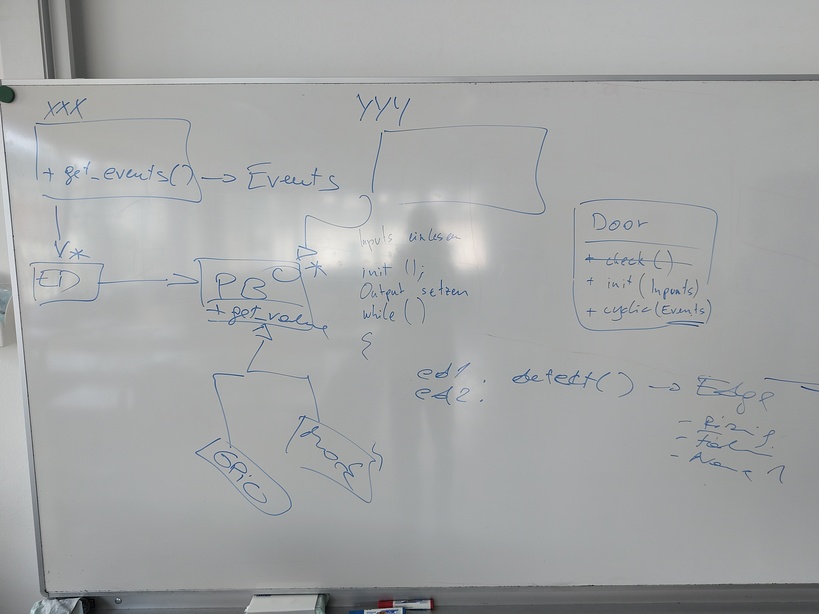 XXX
+ get_events() → Events
*
ED
YYY
*
PB
+ get_value
GPIO
MOCK
Inputs einlesen
init ();
Output setzen
while ()
{
Door
+ check ()
+ init (Inputs)
+ cyclic (Events)
ed1
ed2. detect() → Edge
- Rising
- None